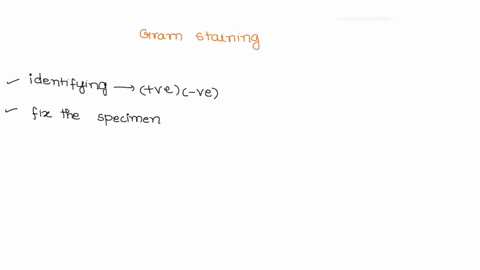 Gram staining
✓ identifying → (+ve) (-ve)
✓ fix the specimen